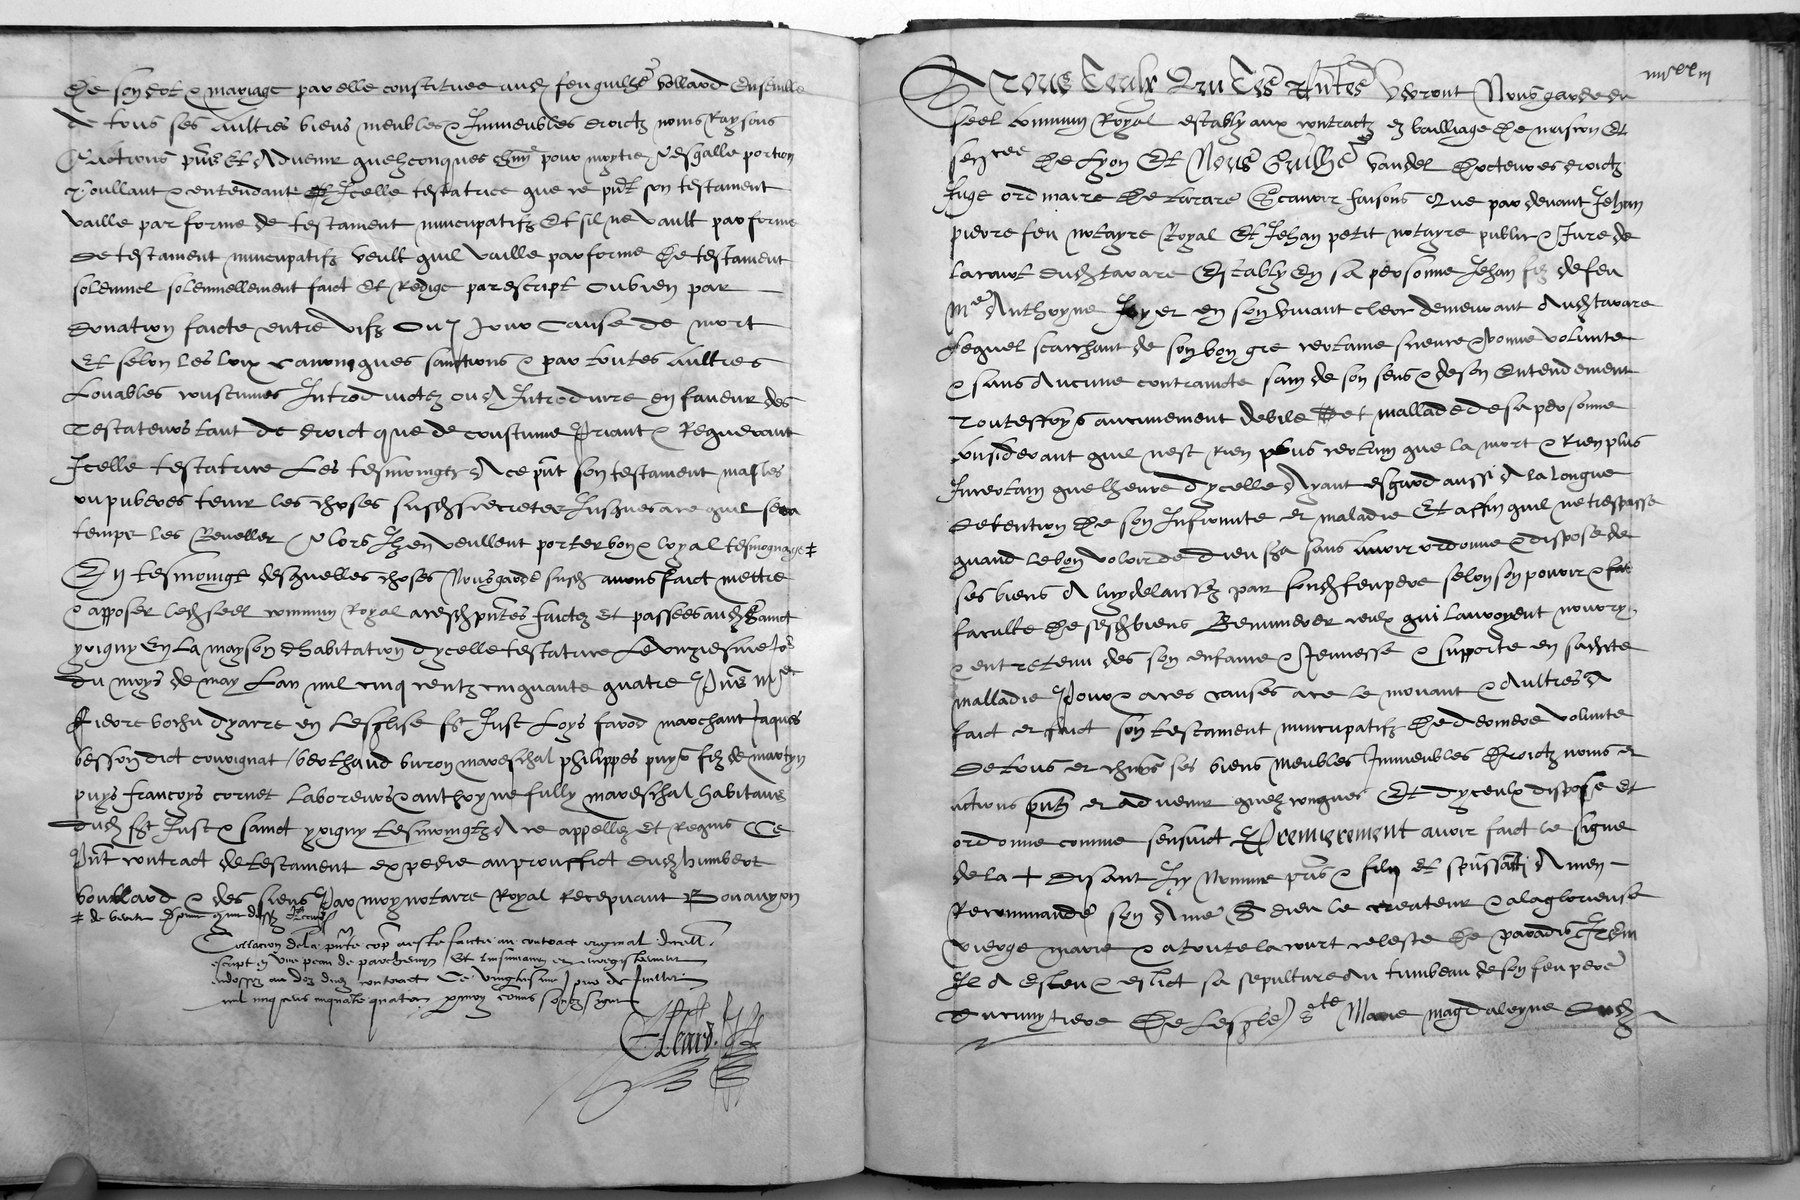 de son dot & mariage par elle constituee aud feu guillē vollard Ensemble
de tous ses aultres biens meubles & Immeubles droictz noms Raysons
& actions pñs Et A duenir quelzconques chūn pour moytie & esgalle portion
Voullant & entendante Icelle testatrice que ce pñt son testament
vaille par forme de testament nuncupatifz Et sil ne vault par forme
de testament nuncupatifz veult quil vaille par forme de testament
solennel solennellement faict Et Redige par escript Ou bien par
donation faicte entre vifz Ou pour Cause de mort
Et selon les loix canoniques sanctions & par toutes aultres
Louables coustumes Introduictez ou A Introduire en faueur des
Testateurs tant de droict que de coustume Priant & Requerant
Icelle testatrice Les tesmoingtz A ce pñt son testament masles
& puberes tenir les choses susd secretes Jusques a ce quil sera
temps les Reueller & lors Ilz en veullent porter bon & loyal tesmognage ‡
En tesmoingt desquelles choses Nous garde susd auons faict mettre
& apposer led seel commun Royal a cesd pñtes faictez Et passees aud Sainct
yrigny En la mayson dhabitation dycelle testatrice Le Unziesme Jor
du moys de may Lan mil cinq centz cinquante quatre Pñs mre
Pierre bochu dyacre en Lesglise st Just Loys farod marchant Jaques
besson dict courignat berthaud buron mareschal philippes puys filz de martyn
puys francoys cornet laboreurs & anthoyne fully mareschal habitans
dud st Just & sainct yrigny tesmoingtz A ce appellez Et Requis Ce
Pñt contract de testament expedie au prouffict dud humbert
voullard & des siens Par moy notaire Royal Recepuant Bonauyon
Collacion de la pñte copp a este faicte au contract original dicell
escript en vne peau de parchemyn Et linsinuation et enregistrement
endossez au doz dud contract Ce vingtiesme Jour de Juillet
mil cinq cens cinquante quatre
iiijxxiij
A Tous Ceulx Qui Ces Pñtes Verront Nous garde du
seel commun Royal estably aux contractz en bailliage de mascon Et
senrcee de Lyon Et Nous Guillē vandel docteur es droictz
Juge ordinaire de tarare Scauoir faisons Que par deuant Jehan
pierrefeu notayre Royal Et Jehan petit notayre public & Jure de
la court dud tarare Estably En sa personne Jehan filz de feu
Me Anthoyne Joyer en son viuant clerc demeurant Aud tarare
Lequel scaichant de son bon gre certaine science & bonne volunte
& sans Aucune contraincte sain de son sens & de son Entendement
Touteffoys aucunement debile et mallade de sa personne
Considerant quil nest rien plus certain que la mort & Rien plus
Incertain que lheure dycelle Ayant esgard aussi A la longue
detention de son Infirmite et maladie Et affin quil ne trespasse
quand le bon voloir de Dieu sera sans auoir ordonne & dispose de
ses biens A luy delaissez par sond feu pere selon son pouoir &
faculte de sesd biens Remunerer ceulx qui lauroyent nourry
& entretenu des son enfance & Jeunesse & supporte en sadicte
malladie Pour & a ces causes a ce le mouant & Aultres A
faict et faict son testament nuncupatifz de derniere volunte
de tous et chūns ses biens meubles Immeubles droictz noms et
actions pñtz et aduenir quelzconques Et dyceulx dispose Et
ordonne comme sensuict Premierement auoir faict le signe
de la + disant In Nomine pris & filii et spūssācti Amen
Recommande son Ame A dieu le createur & a la glorieuse
vierge marie & a toute la court celeste de paradis Item
Il A Esleu & eslict sa sepulture Au tumbeau de son feu pere
Au cimytiere de Lesglē Ste Marie magdaleyne dud